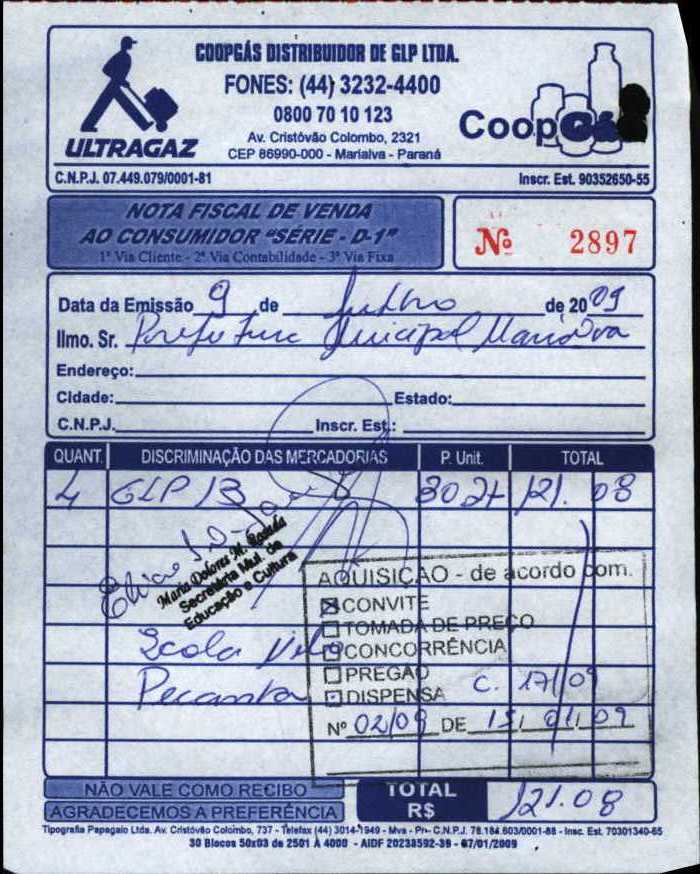 COOPGÁS DISTRIBUIDOR DE GLP LTDA.
FONES: (44) 3232-4400
0800 70 10 123
Av. Cristóvão Colombo, 2321
CEP 86990-000 - Marialva - Paraná
ULTRAGAZ
CoopGás
C.N.P.J. 07.449.079/0001-81 Inscr. Est. 90352650-55
NOTA FISCAL DE VENDA
AO CONSUMIDOR "SÉRIE - D-1"
1ª Via Cliente - 2ª Via Contabilidade - 3ª Via Fixa
Nº 2897
Data da Emissão 9 de Julho de 2009
Ilmo. Sr. Prefeitura Municipal Marialva
Endereço:
Cidade: Estado:
C.N.P.J. Inscr. Est.:
QUANT. DISCRIMINAÇÃO DAS MERCADORIAS P. Unit. TOTAL
4 GLP 13 30 27 121.08
Maria Dolores M.
Secretária Mul. de
Educação e Cultura
AQUISIÇÃO - de acordo com.
CONVITE
TOMADA DE PREÇO
CONCORRÊNCIA
PREGÃO
DISPENSA C. 17/09
Nº 02/09 DE 15/01/09
NÃO VALE COMO RECIBO
AGRADECEMOS A PREFERÊNCIA
TOTAL R$ 121.08
Tipografia Papagaio Ltda. Av. Cristóvão Colombo, 737 - Telefax (44) 3014-1949 - Mva - Pr - C.N.P.J. 78.184.603/0001-88 - Insc. Est. 70301340-65
30 Blocos 50x03 de 2501 À 4000 - AIDF 20238592-39 - 07/01/2009